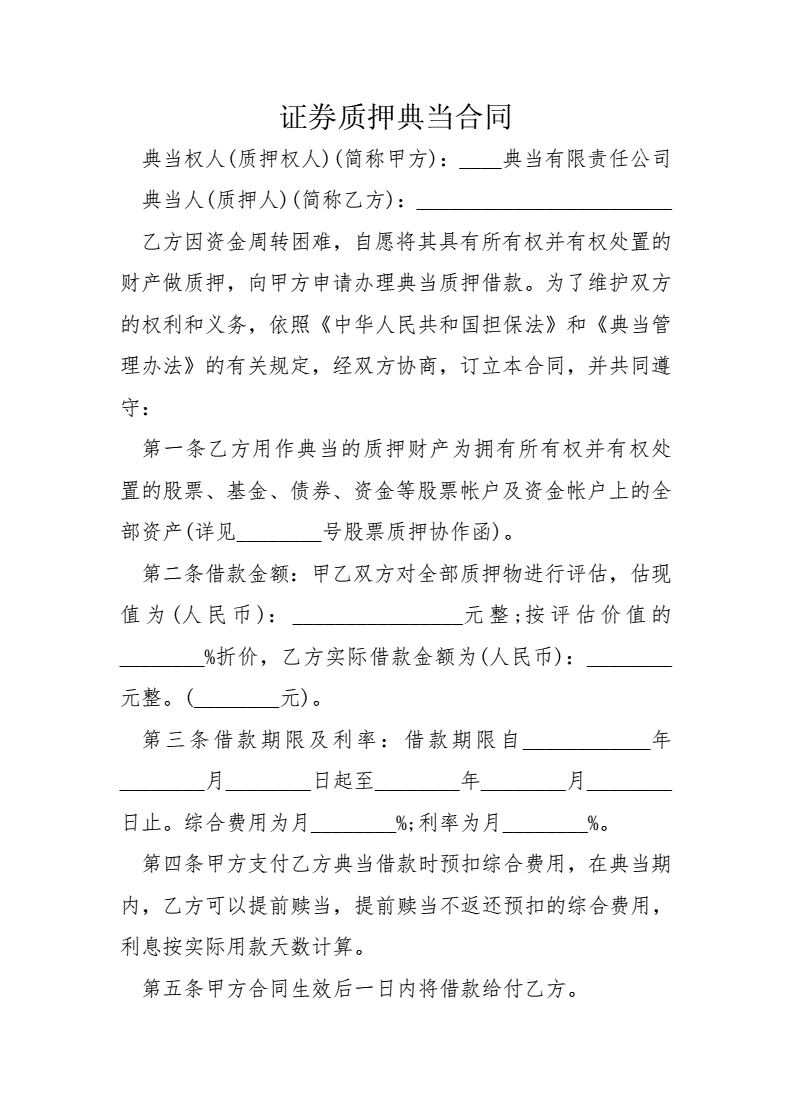 证券质押典当合同
典当权人(质押权人)(简称甲方): ____典当有限责任公司
典当人(质押人)(简称乙方): ________________________
乙方因资金周转困难，自愿将其具有所有权并有权处置的
财产做质押，向甲方申请办理典当质押借款。为了维护双方
的权利和义务，依照《中华人民共和国担保法》和《典当管
理办法》的有关规定，经双方协商，订立本合同，并共同遵
守:
第一条乙方用作典当的质押财产为拥有所有权并有权处
置的股票、基金、债券、资金等股票帐户及资金帐户上的全
部资产(详见________号股票质押协作函)。
第二条借款金额: 甲乙双方对全部质押物进行评估，估现
值为(人民币): ________________元整;按评估价值的
________%折价，乙方实际借款金额为(人民币): ________
元整。(________元)。
第三条借款期限及利率: 借款期限自____________年
________月________日起至________年________月________
日止。综合费用为月________%;利率为月________%。
第四条甲方支付乙方典当借款时预扣综合费用，在典当期
内，乙方可以提前赎当，提前赎当不返还预扣的综合费用，
利息按实际用款天数计算。
第五条甲方合同生效后一日内将借款给付乙方。